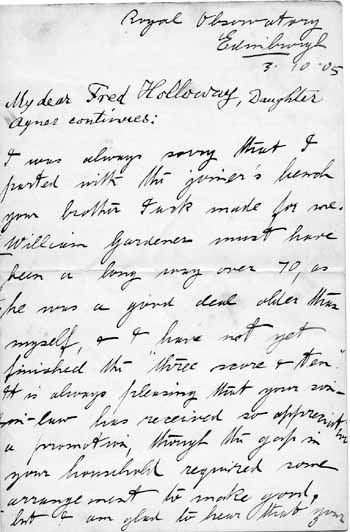 Royal Observatory
Edinburgh
3. 10. 05
My dear Fred Holloway, Daughter
Agnes continues:
I was always sorry that I
parted with the joiner's bench
your brother made for me.
William Gardener must have
been a long way over 70, as
he was a good deal older than
myself, & I have not yet
finished the "three score & ten".
It is always pleasing that your son-
in-law has received so
a promotion, though the gap in
your household required some
arrangement to make good,
but I am glad to hear that your